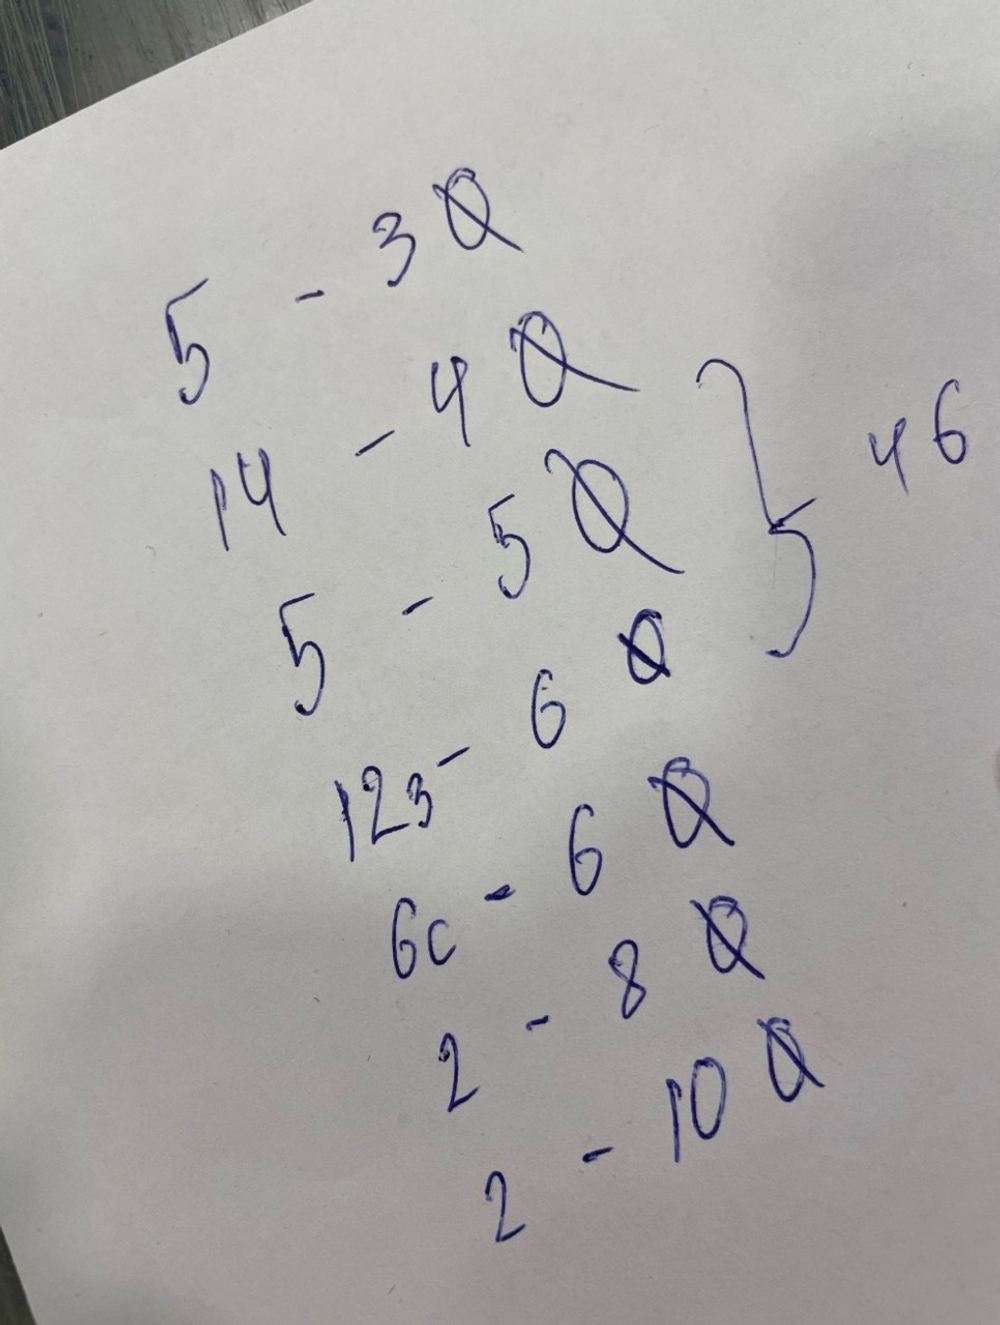 5 - 3 Ø
14 - 4 Ø
5 - 5 Ø
} 46
123 - 6 Ø
6c - 6 Ø
2 - 8 Ø
2 - 10 Ø